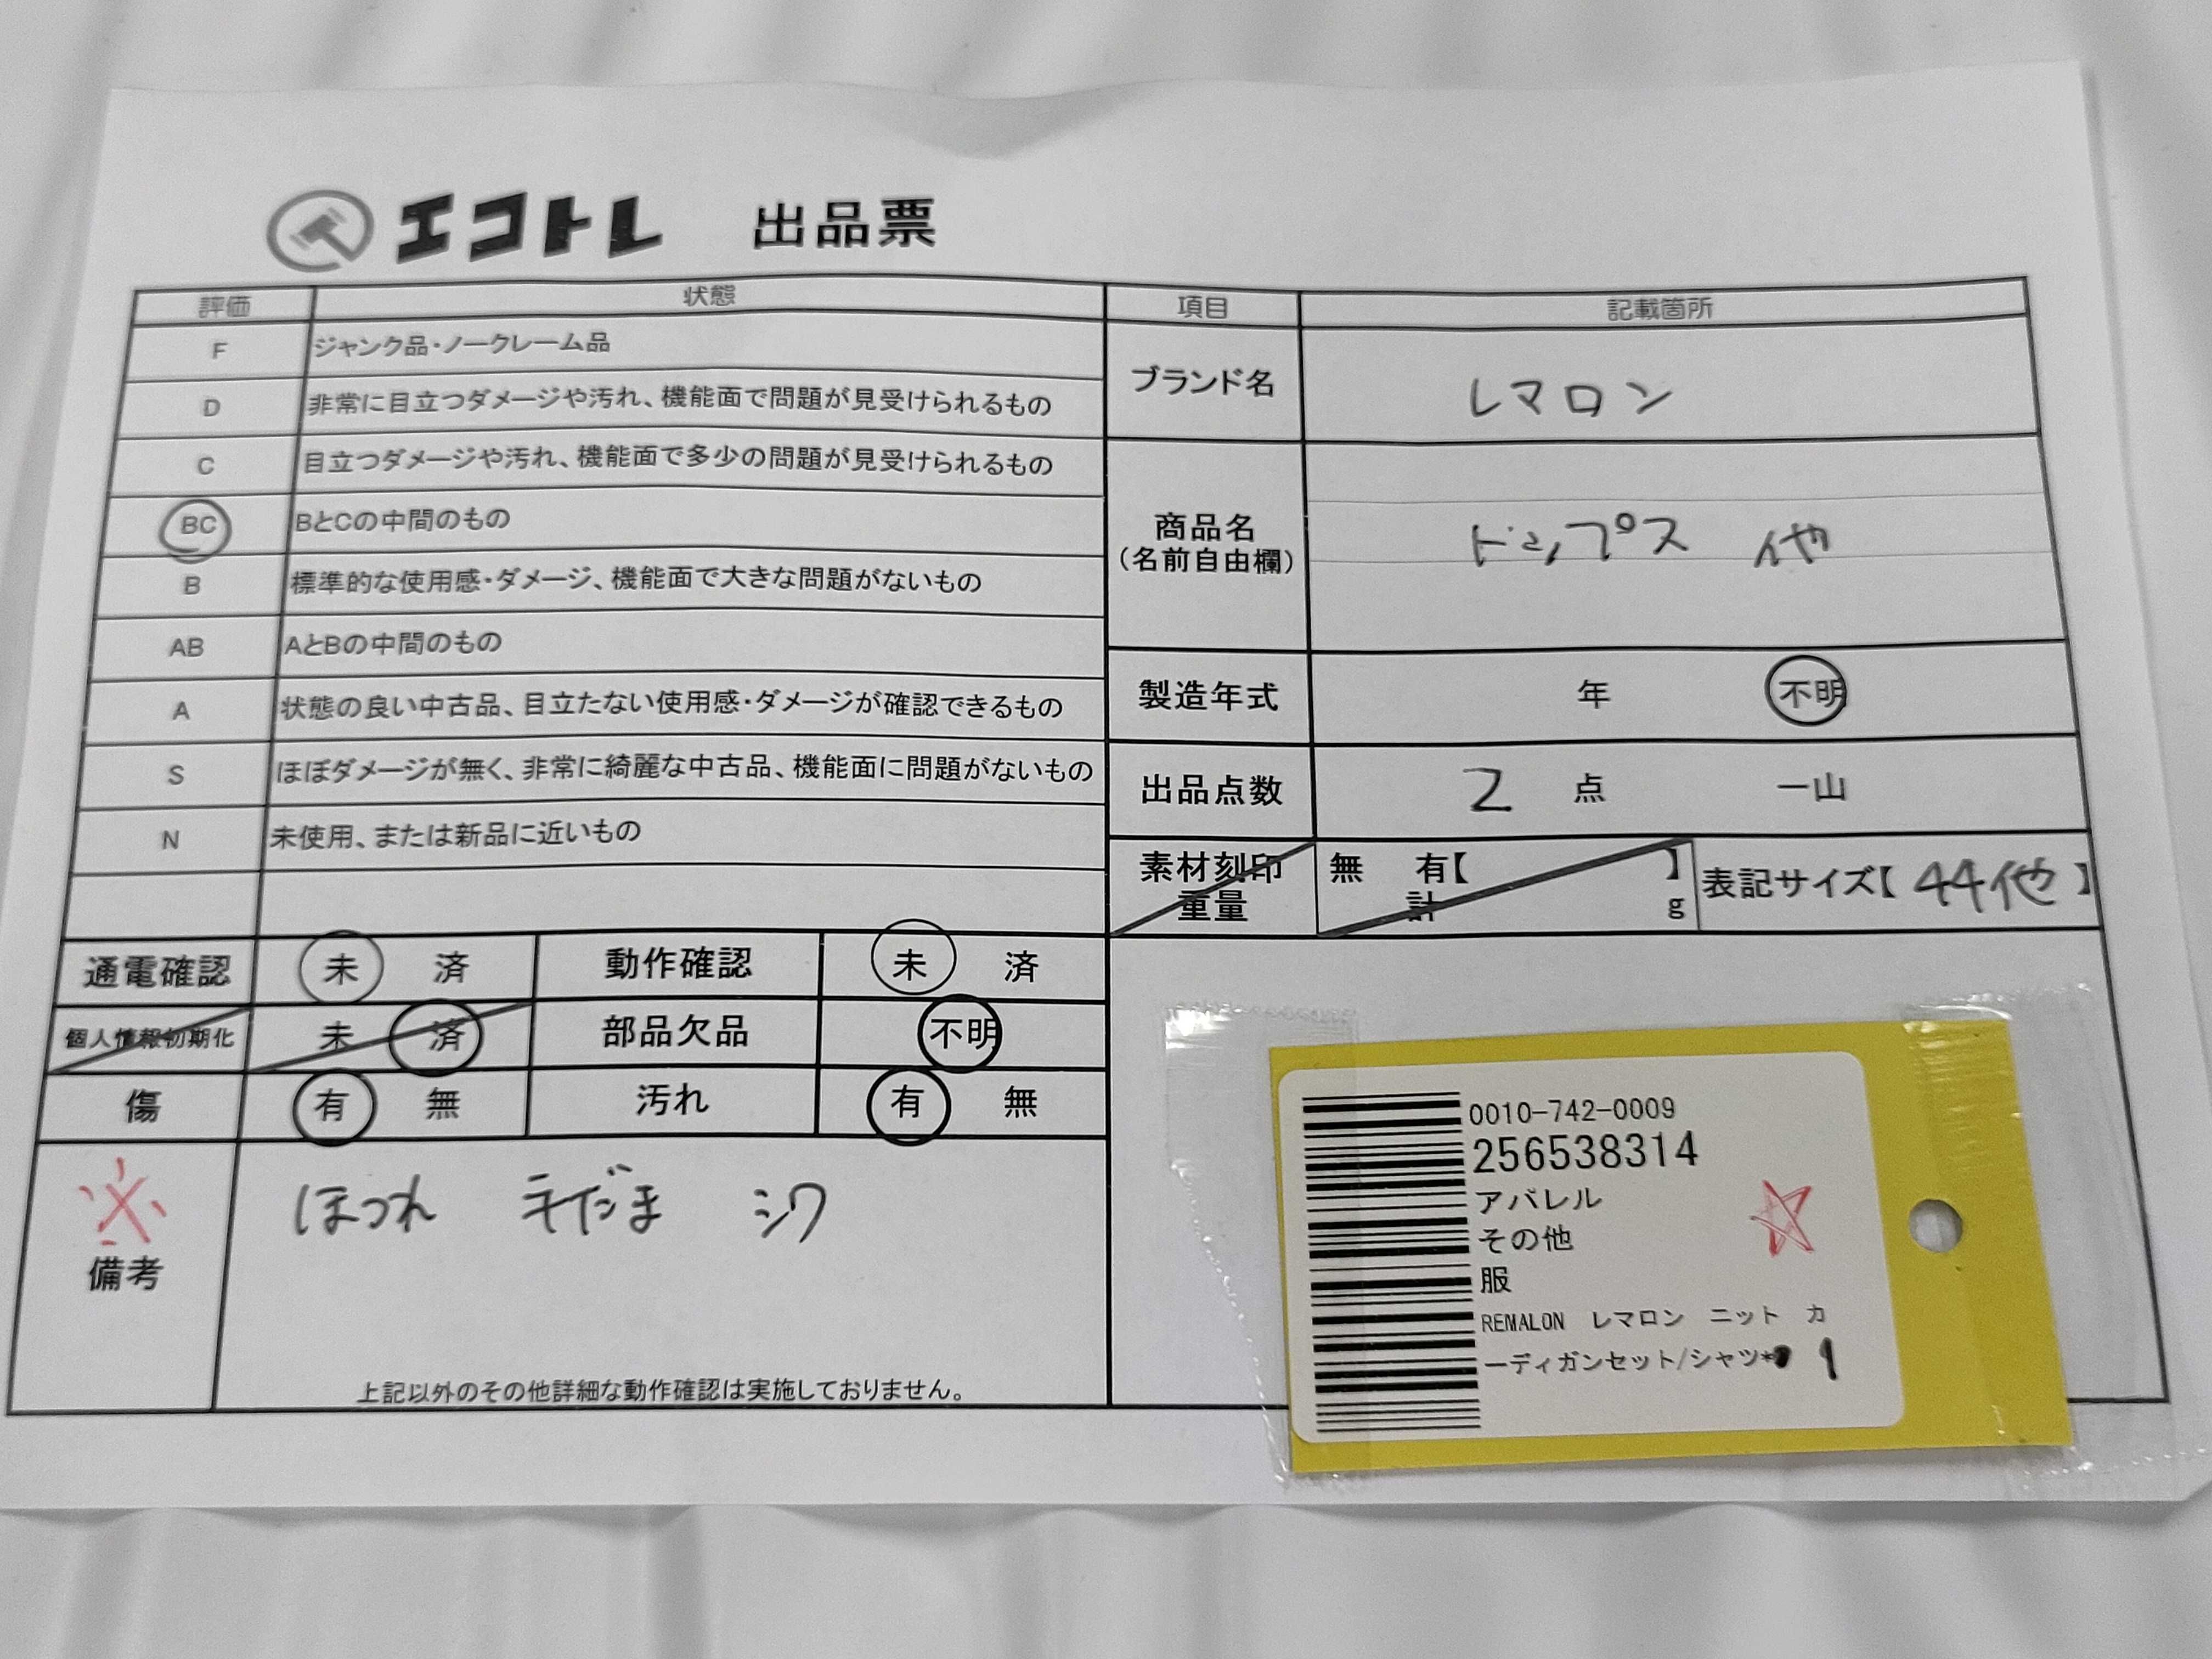 エコトレ 出品票
評価 状態 項目 記載箇所
F ジャンク品・ノークレーム品
D 非常に目立つダメージや汚れ、機能面で問題が見受けられるもの
C 目立つダメージや汚れ、機能面で多少の問題が見受けられるもの
BC BとCの中間のもの
B 標準的な使用感・ダメージ、機能面で大きな問題がないもの
AB AとBの中間のもの
A 状態の良い中古品、目立たない使用感・ダメージが確認できるもの
S ほぼダメージが無く、非常に綺麗な中古品、機能面に問題がないもの
N 未使用、または新品に近いもの
ブランド名 レマロン
商品名
(名前自由欄)
トップス 他
製造年式 年 不明
出品点数 2 点 一山
素材刻印
重量
無 有【 】
計 g
表記サイズ【 44他 】
通電確認 未 済 動作確認 未 済
個人情報初期化 未 済 部品欠品 不明
傷 有 無 汚れ 有 無
※
備考
ほつれ 毛だま シワ
上記以外のその他詳細な動作確認は実施しておりません。
0010-742-0009
256538314
アパレル
その他
服
REMALON レマロン ニット カ
ーディガンセット/シャツ* 1